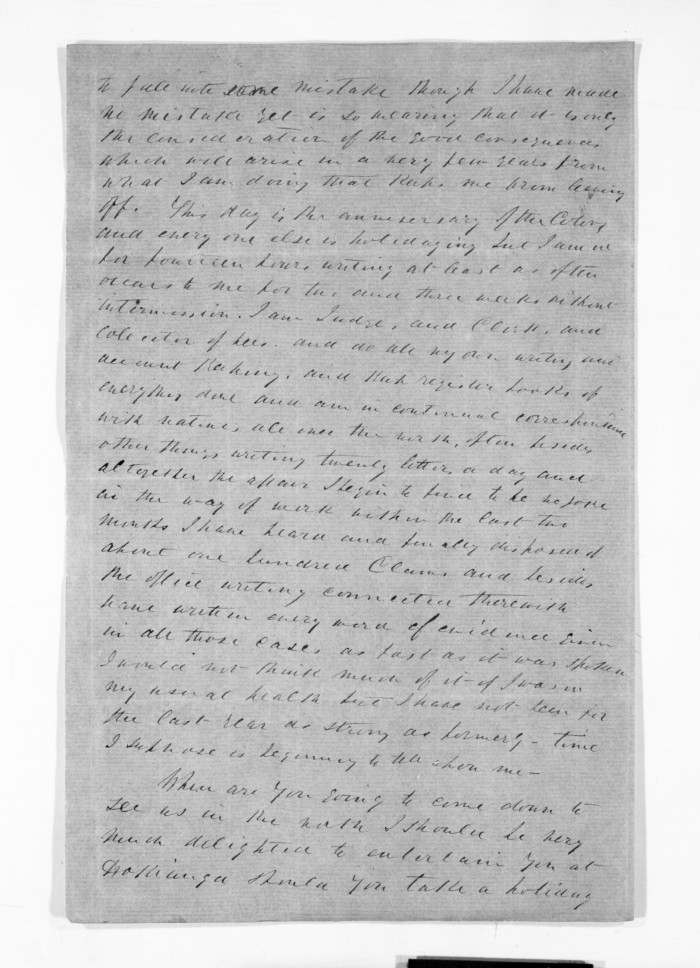 to fall into some mistake though I have made
no mistake yet is so wearing that it is only
the consideration of the good consequences
which will arise in a very few years from
what I am doing that keeps me from leaving
off. This day is the anniversary of the Colony
and every one else is holidaying but I am in
for fourteen hours writing at least as often
occurs to me for two and three weeks without
intermission. I am Judge, and Clerk, and
Colector of fees. and do all my own writing and
account Keeping, and Keep register books of
everything done and am in continual correspondence
with natives all over the north, often besides
other things writing twenty letters a day and
altogether the affair I begin to find to be no joke
in the way of work within the last two
months I have heard and finally disposed of
about one hundred Claims and besides
the office writing connected therewith
have written every word of evidence given
in all those cases as fast as it was spoken
I would not think much of it if I was in
my usual health but I have not been for
the last year as strong as formerly - time
I suppose is beginning to tell upon me -
When are you going to come down to
see us in the north I should be very
much delighted to entertain you at
Hokianga should you take a holiday